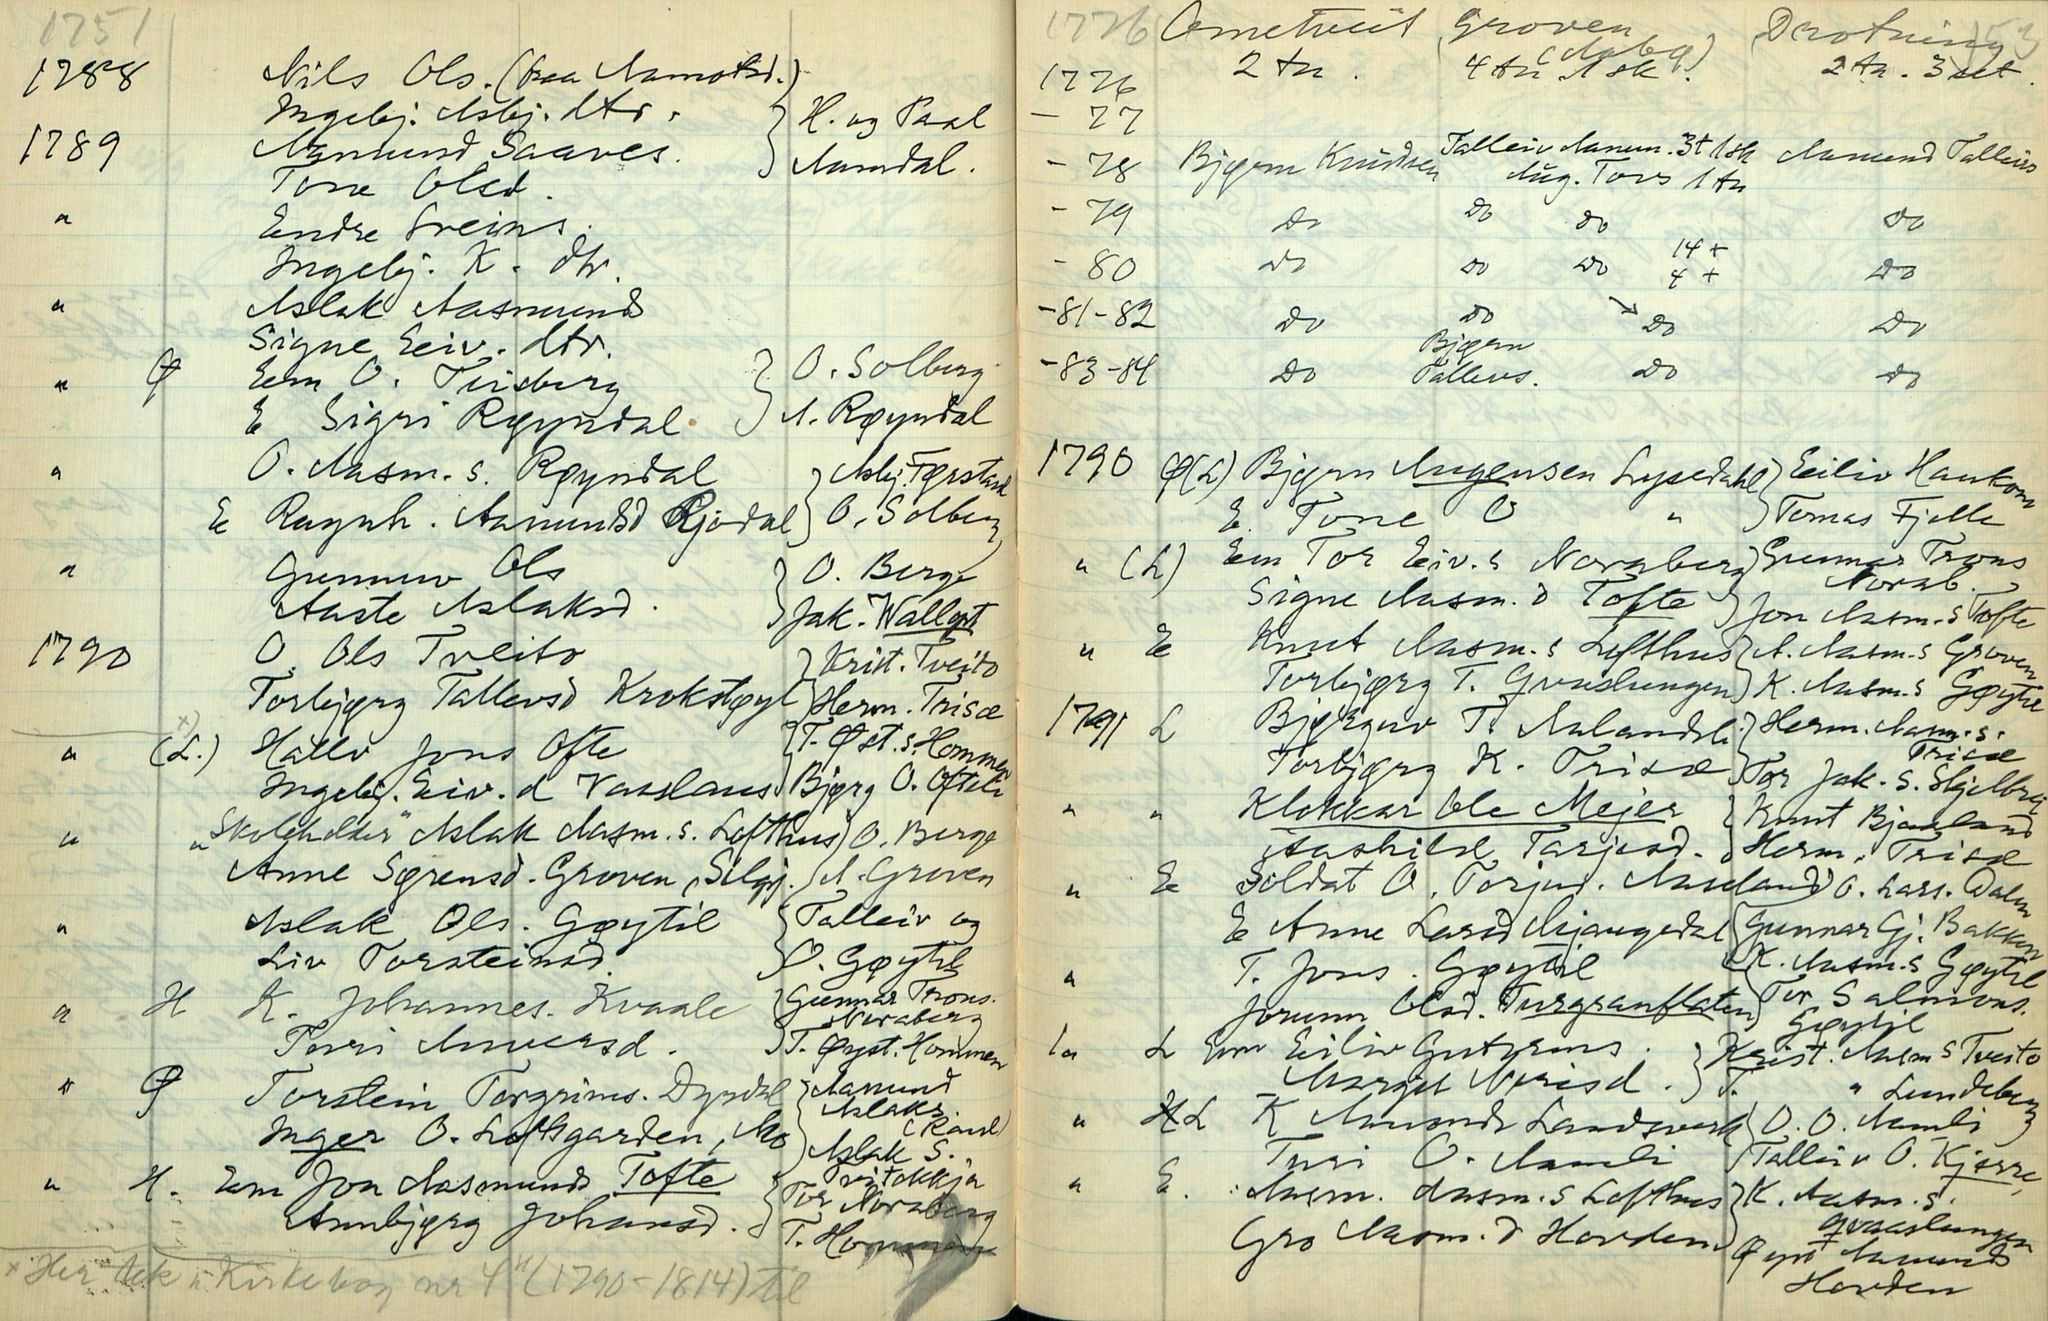 1751
1788 Nils Ols. (fraa Aamotsd.)
Ingebj. Asbj. dtr. H. og Paal
1789 Aamund Saaves. Aamdal.
Tone Olsd.
" Endre Sveins.
Ingebj. K. dtr.
" Aslak Aasmunds
Signe Eiv. dtr.
" Ø Em O. Tinsberg O. Solberg
E Sigri Røyndal A. Røyndal
" O. Aasm. s. Røyndal Asbj. Førstad
E Raynh. Aamundsd Rjodal O. Solberg
" Gunnuv Ols O. Berge
Aaste Aslaksd. Jak. Wallept
1790 O. Ols Tveito Krist. Tveito
Torbjørg Tallevsd Krokstøyl Herm. Trisæ
" (L.) Hallv Jons Ofte T. Øst. s. Hommen
Ingebj. Eiv. d Vaaslaus Bjørg O. Ofteli
" "Skoleholder" Aslak Aasm. s. Lofthus O. Berge
Anne Sørensd. Groven, Silgj. A. Groven
" Aslak Ols. Gøytil Talleiv og
Liv Torsteinsd. O. Gøytil
" H K. Johannes. Kvaale Gunnar Trons. Noraberg
Torri Anversd. T. Øyst. Hommen
" Ø Torstein Torgrims. Dyrdal Aamund Aslaks. (Raul)
Inger O. Loftsgarden, Mo Aslak S.
" H. Em Jon Aasmunds Tofte Tor Noraberg
Annbjørg Johansd. T. Hommen
x Her tek "Kirkebog nr 4" (1790-1814) til
1776 Ametveit Groven (Aabø) Drotning 53
1776 2 tn. 4 tn 1 sk. 2 tn. 3 set.
- 77
- 78 Bjørn Knudsen Talleiv Aamun. 3t 1sk Aug. Tovs 1 tn Aamund Talleivs
- 79 Do Do Do Do
- 80 Do Do Do 14 + 4 + Do
- 81 - 82 Do Do Do Do
- 83 - 84 Do Bjørn Tallevs. Do Do
1790 Ø (L) Bjørn Augensen Lysedahl Eiliv Haukom
E. Tone O " Tomas Fjelle
" (L) Em Tor Eiv. s Noraberg Gunnar Trons Norab.
Signe Aasm. d Tofte Jon Aasm. s Tofte
" E Knut Aasm. s Lofthus A. Aasm. s Groven
Torbjørg T. Graaslungen K. Aasm. s Gøytil
1791 L Bjørguv T. Aalandsli Herm. Aasm. s. Trisæ
Torbjørg K. Trisæ Tor Jak. s. Skjelbrei
" " Klokkar Ole Mejer Knut Bjaaland
Aashild Tarjesd. Herm. Trisæ
" E Soldat O. Torjus. Aaseland O. Lars. Dalen
E Anne Larsd Mjaugedal Gunnar Gj. Bakken
" T. Jons. Gøytil K. Aasm. s Gøytil
Jorunn Olsd. Turgranflaten Tor Salmons. Gøytil
" L Em Eiliv Guttorms. Krist. Aasm s Tveito
Margit Nerisd. T. " Lundeberg
" HL K Amunds Landsverk O. O. Aamli
Turi O. Aamli Talleiv O. Kjørre,
" E. Aasm. Aasm. s Lofthus K. Aasm. s. Graaslungen
Gro Aasm. d Hovden Øyst Aamunds Hovden